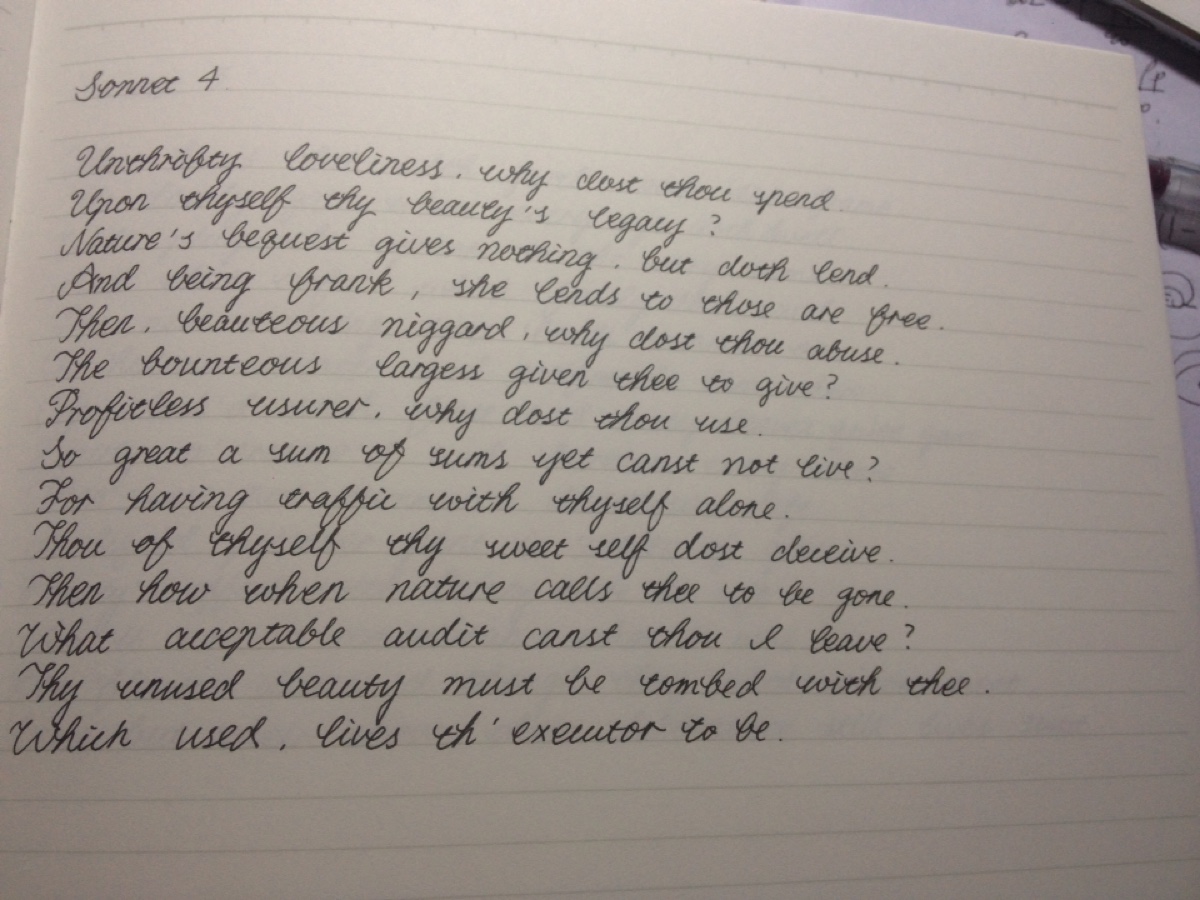 Sonnet 4.
Unthrifty loveliness, why dost thou spend
Upon thyself thy beauty's legacy?
Nature's bequest gives nothing, but doth lend.
And being frank, she lends to those are free.
Then, beauteous niggard, why dost thou abuse.
The bounteous largess given thee to give?
Profitless usurer, why dost thou use.
So great a sum of sums yet canst not live?
For having traffic with thyself alone.
Thou of thyself thy sweet self dost deceive.
Then how when nature calls thee to be gone.
What acceptable audit canst thou I leave?
Thy unused beauty must be tombed with thee.
Which used, lives th' executor to be.